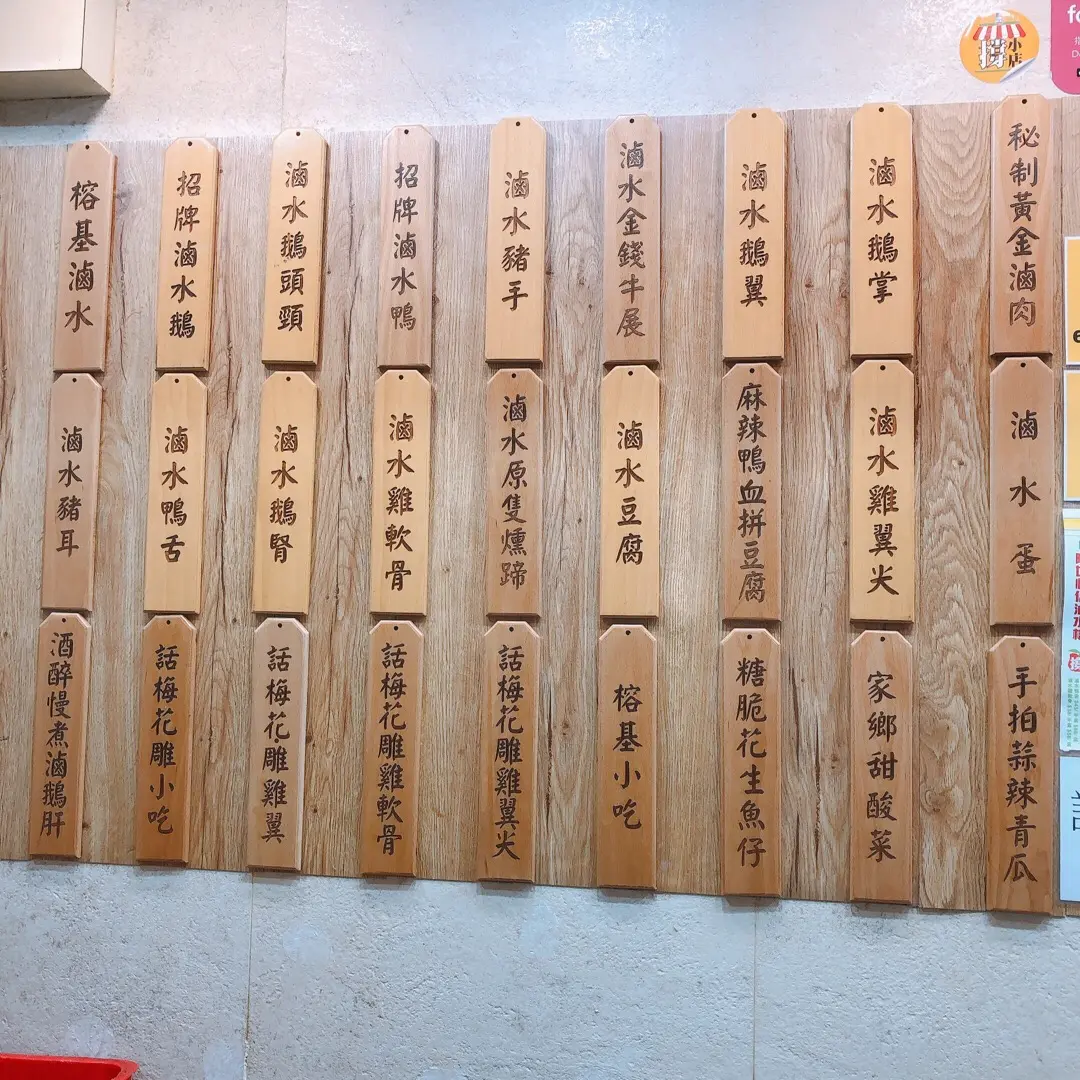 榕基滷水
招牌滷水鵝
滷水鵝頭頸
招牌滷水鴨
滷水豬手
滷水金錢牛展
滷水鵝翼
滷水鵝掌
秘制黃金滷肉
滷水豬耳
滷水鴨舌
滷水鵝腎
滷水雞軟骨
滷水原隻燻蹄
滷水豆腐
麻辣鴨血拼豆腐
滷水雞翼尖
滷水蛋
酒醉慢煮滷鵝肝
話梅花雕小吃
話梅花雕雞翼
話梅花雕雞軟骨
話梅花雕雞翼尖
榕基小吃
糖脆花生魚仔
家鄉甜酸菜
手拍蒜辣青瓜
撐小店